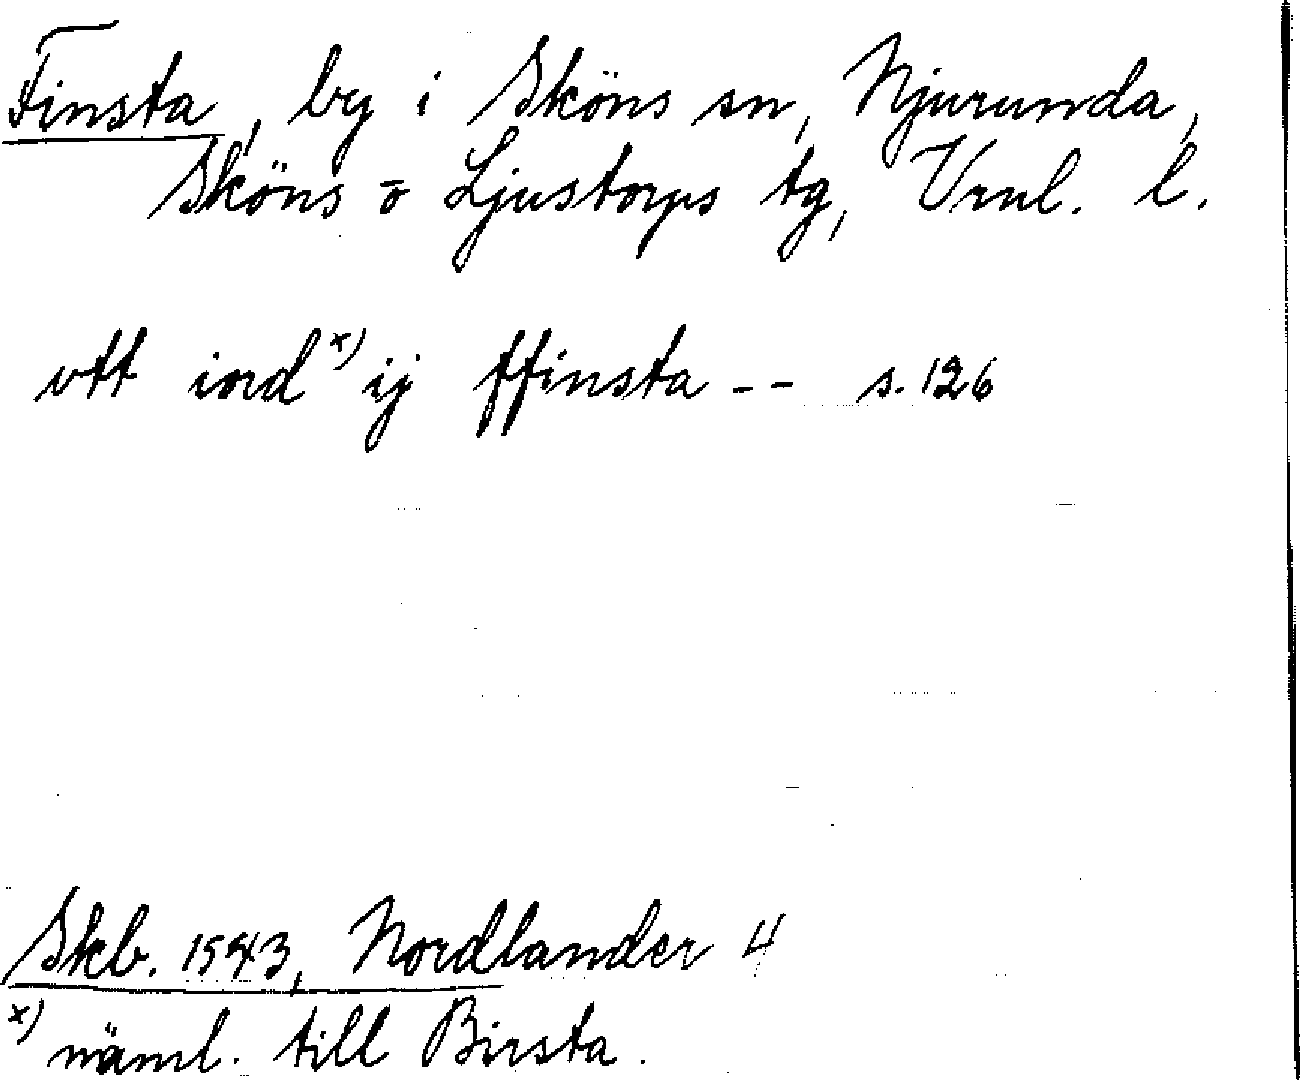 Finsta, by i Sköns sn, Njurunda,
Sköns o Ljustorps tg, Vrnl. l.
vtt iord x) ij ffinsta -- s. 126
Skb. 1543, Nordlander 4
x) näml. till Birsta.